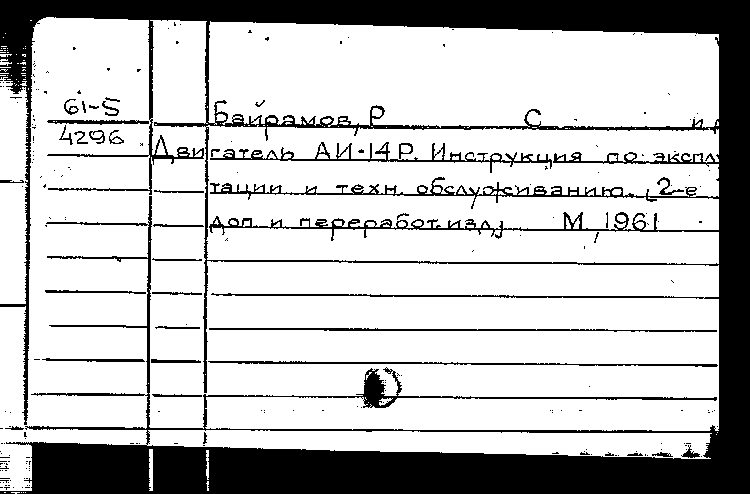 61-5
Байрамов, Р С и
4296
Двигатель АИ-14Р. Инструкция по эксплу
тации и техн. обслуживанию. [2-е
доп и переработ. изд] М, 1961